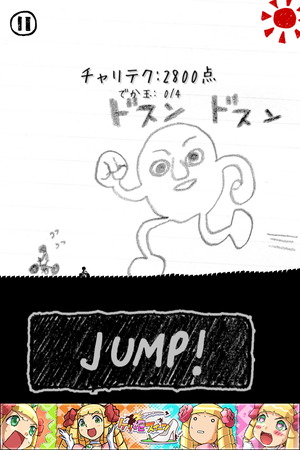 チャリテク:2800点
でか玉: 0/4
ドスン ドスン
JUMP!